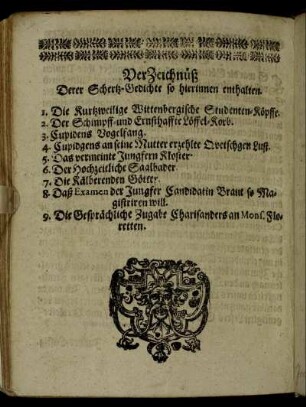 VerZeichnüß
Derer Schertz-Gedichte so hierinnen enthalten.
1. Die Kurtzweilige Wittenbergische Studenten-Köpffe.
2. Der Schimpff- und Ernsthaffte Löffel-Korb.
3. Cupidens Vogelfang.
4. Cupidgens an seine Mutter erzehlte Qvetschgen Lust.
5. Das vermeinte Jungfern Kloster
6. Der Hochzeitliche Saalbader.
7. Die Kälberenden Götter.
8. Daß Examen der Jungfer Candidatin Braut so Ma-
gistriren will.
9. Die Gesprächliche Zugabe Charisanders an Mons. Flo-
retten.